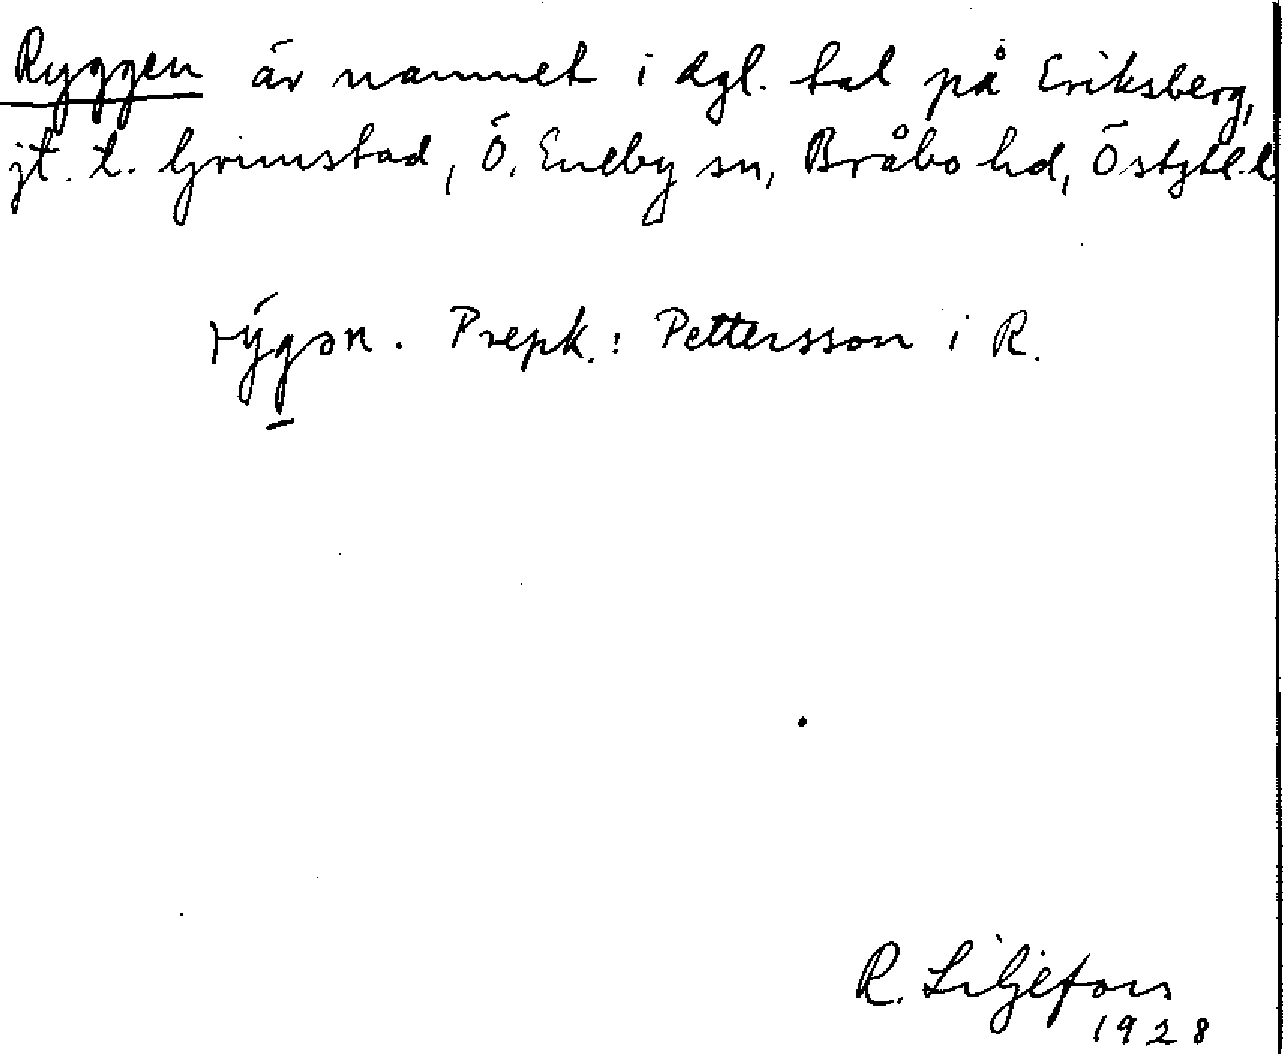 Ryggen är namnet i dgl. tal på Eriksberg,
jt. t. Grimstad, Ö. Eneby sn, Bråbo hd, Östgtl.
rýg̲ən. Prepk.: Pettersson i R.
R. Liljefors
1928